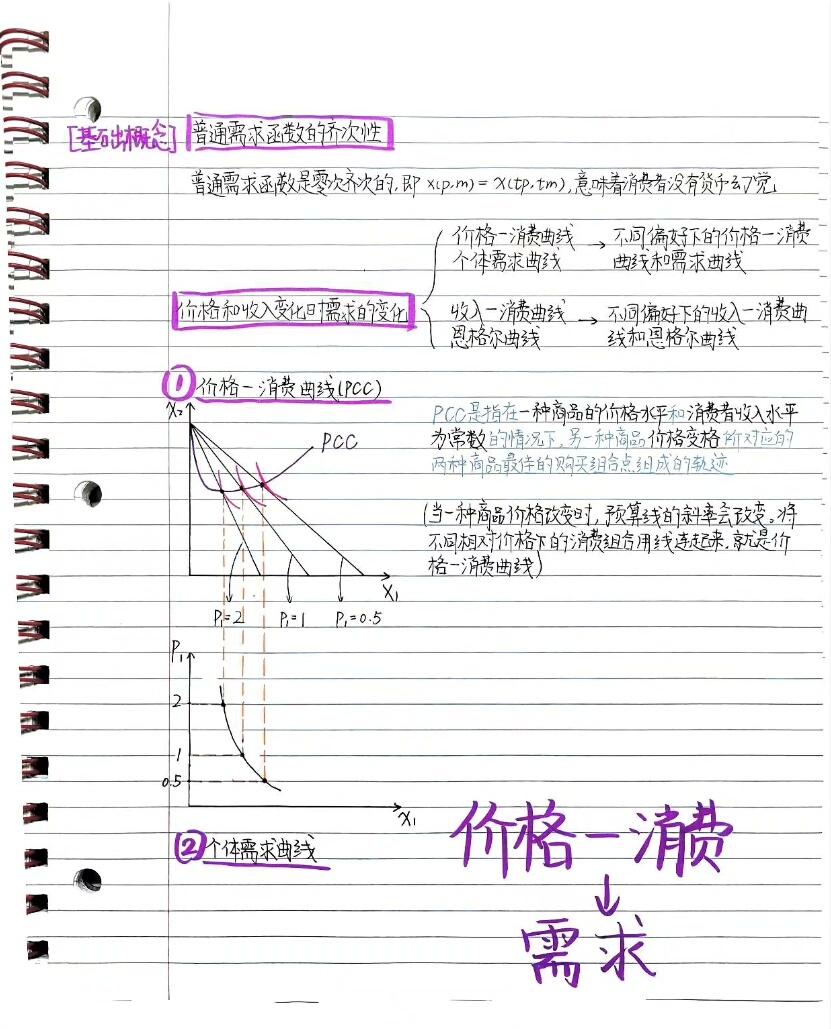 [基础概念] 普通需求函数的齐次性
普通需求函数是零次齐次的,即 x(p,m) = x(tp,tm),意味着消费者没有货币幻觉
价格和收入变化时需求的变化
价格一消费曲线 → 不同偏好下的价格一消费
个体需求曲线 曲线和需求曲线
收入一消费曲线 → 不同偏好下的收入一消费曲
恩格尔曲线 线和恩格尔曲线
① 价格一消费曲线(PCC)
X₂
PCC
X₁
P₁=2 P₁=1 P₁=0.5
PCC是指在一种商品的价格水平和消费者收入水平
为常数的情况下,另一种商品价格变格所对应的
两种商品最佳的购买组合点组成的轨迹
(当一种商品价格改变时,预算线的斜率会改变。将
不同相对价格下的消费组合用线连起来,就是价
格一消费曲线)
P₁
2
1
0.5
X₁
② 个体需求曲线
价格一消费
↓
需求